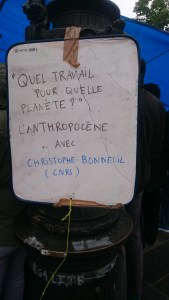 "QUEL TRAVAIL
POUR QUELLE
PLANÈTE?"
L'ANTHROPOCÈNE
AVEC
CHRISTOPHE BONNEUIL
(CNRS)